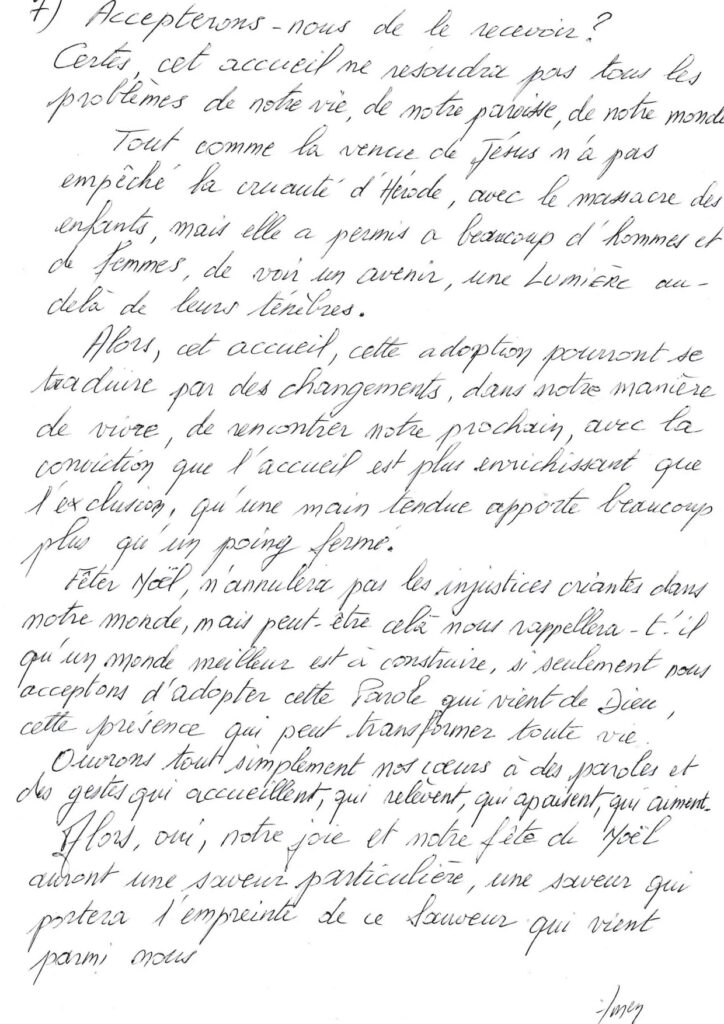 7) Accepterons-nous de le recevoir?
Certes, cet accueil ne résoudra pas tous les
problèmes de notre vie, de notre paroisse, de notre monde
Tout comme la venue de Jésus n'a pas
empêché la cruauté d'Hérode, avec le massacre des
enfants, mais elle a permis a beaucoup d'hommes et
de femmes, de voir un avenir, une LUMIÈRE au-
delà de leurs ténèbres.
Alors, cet accueil, cette adoption pourront se
traduire par des changements, dans notre manière
de vivre, de rencontrer notre prochain, avec la
conviction que l'accueil est plus enrichissant que
l'exclusion, qu'une main tendue apporte beaucoup
plus qu'un poing fermé.
Fêter Noël, n'annulera pas les injustices criantes dans
notre monde, mais peut-être celà nous rappellera-t'il
qu'un monde meilleur est à construire, si seulement nous
acceptons d'adopter cette Parole qui vient de Dieu,
cette présence qui peut transformer toute vie.
Ouvrons tout simplement nos cœurs à des paroles et
des gestes qui accueillent, qui relèvent, qui apaisent, qui aiment.
Alors, oui, notre joie et notre fête de Noël
auront une saveur particulière, une saveur qui
portera l'empreinte de ce Sauveur qui vient
parmi nous
Amen